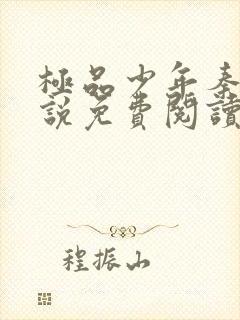 極品少年秦
說免費閱讀
程振山